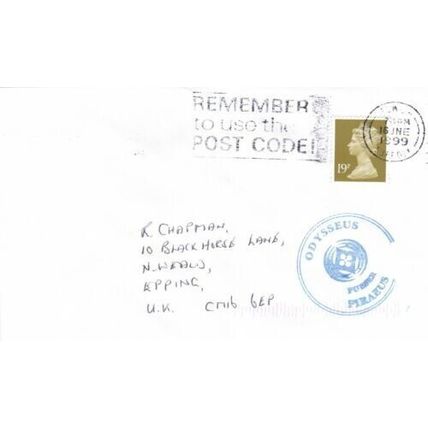 REMEMBER
to use the
POST CODE!
16 JNE
1999
19P
R CHAPMAN,
10 BLACKHORSE LANE,
N. WEALD,
EPPING,
U.K. CM16 6EP.
ODYSSEUS
PURSER
PIRAEUS